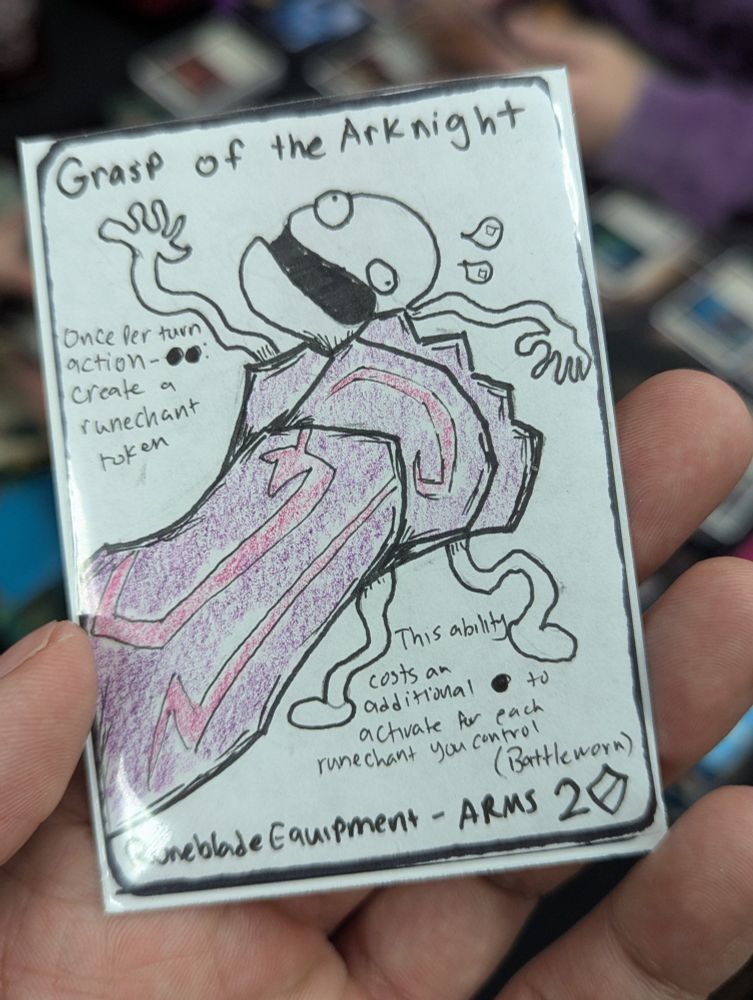 Grasp of the Arknight
Once Per turn
action - ●●:
create a
runechant
token
This ability
costs an
additional ● to
activate for each
runechant you control
(Battleworn)
Runeblade Equipment - ARMS 2